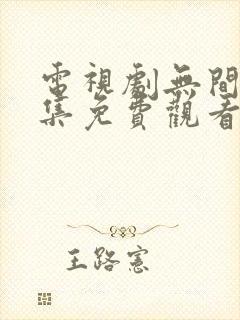 電視劇無間
集免費觀看
王路憲